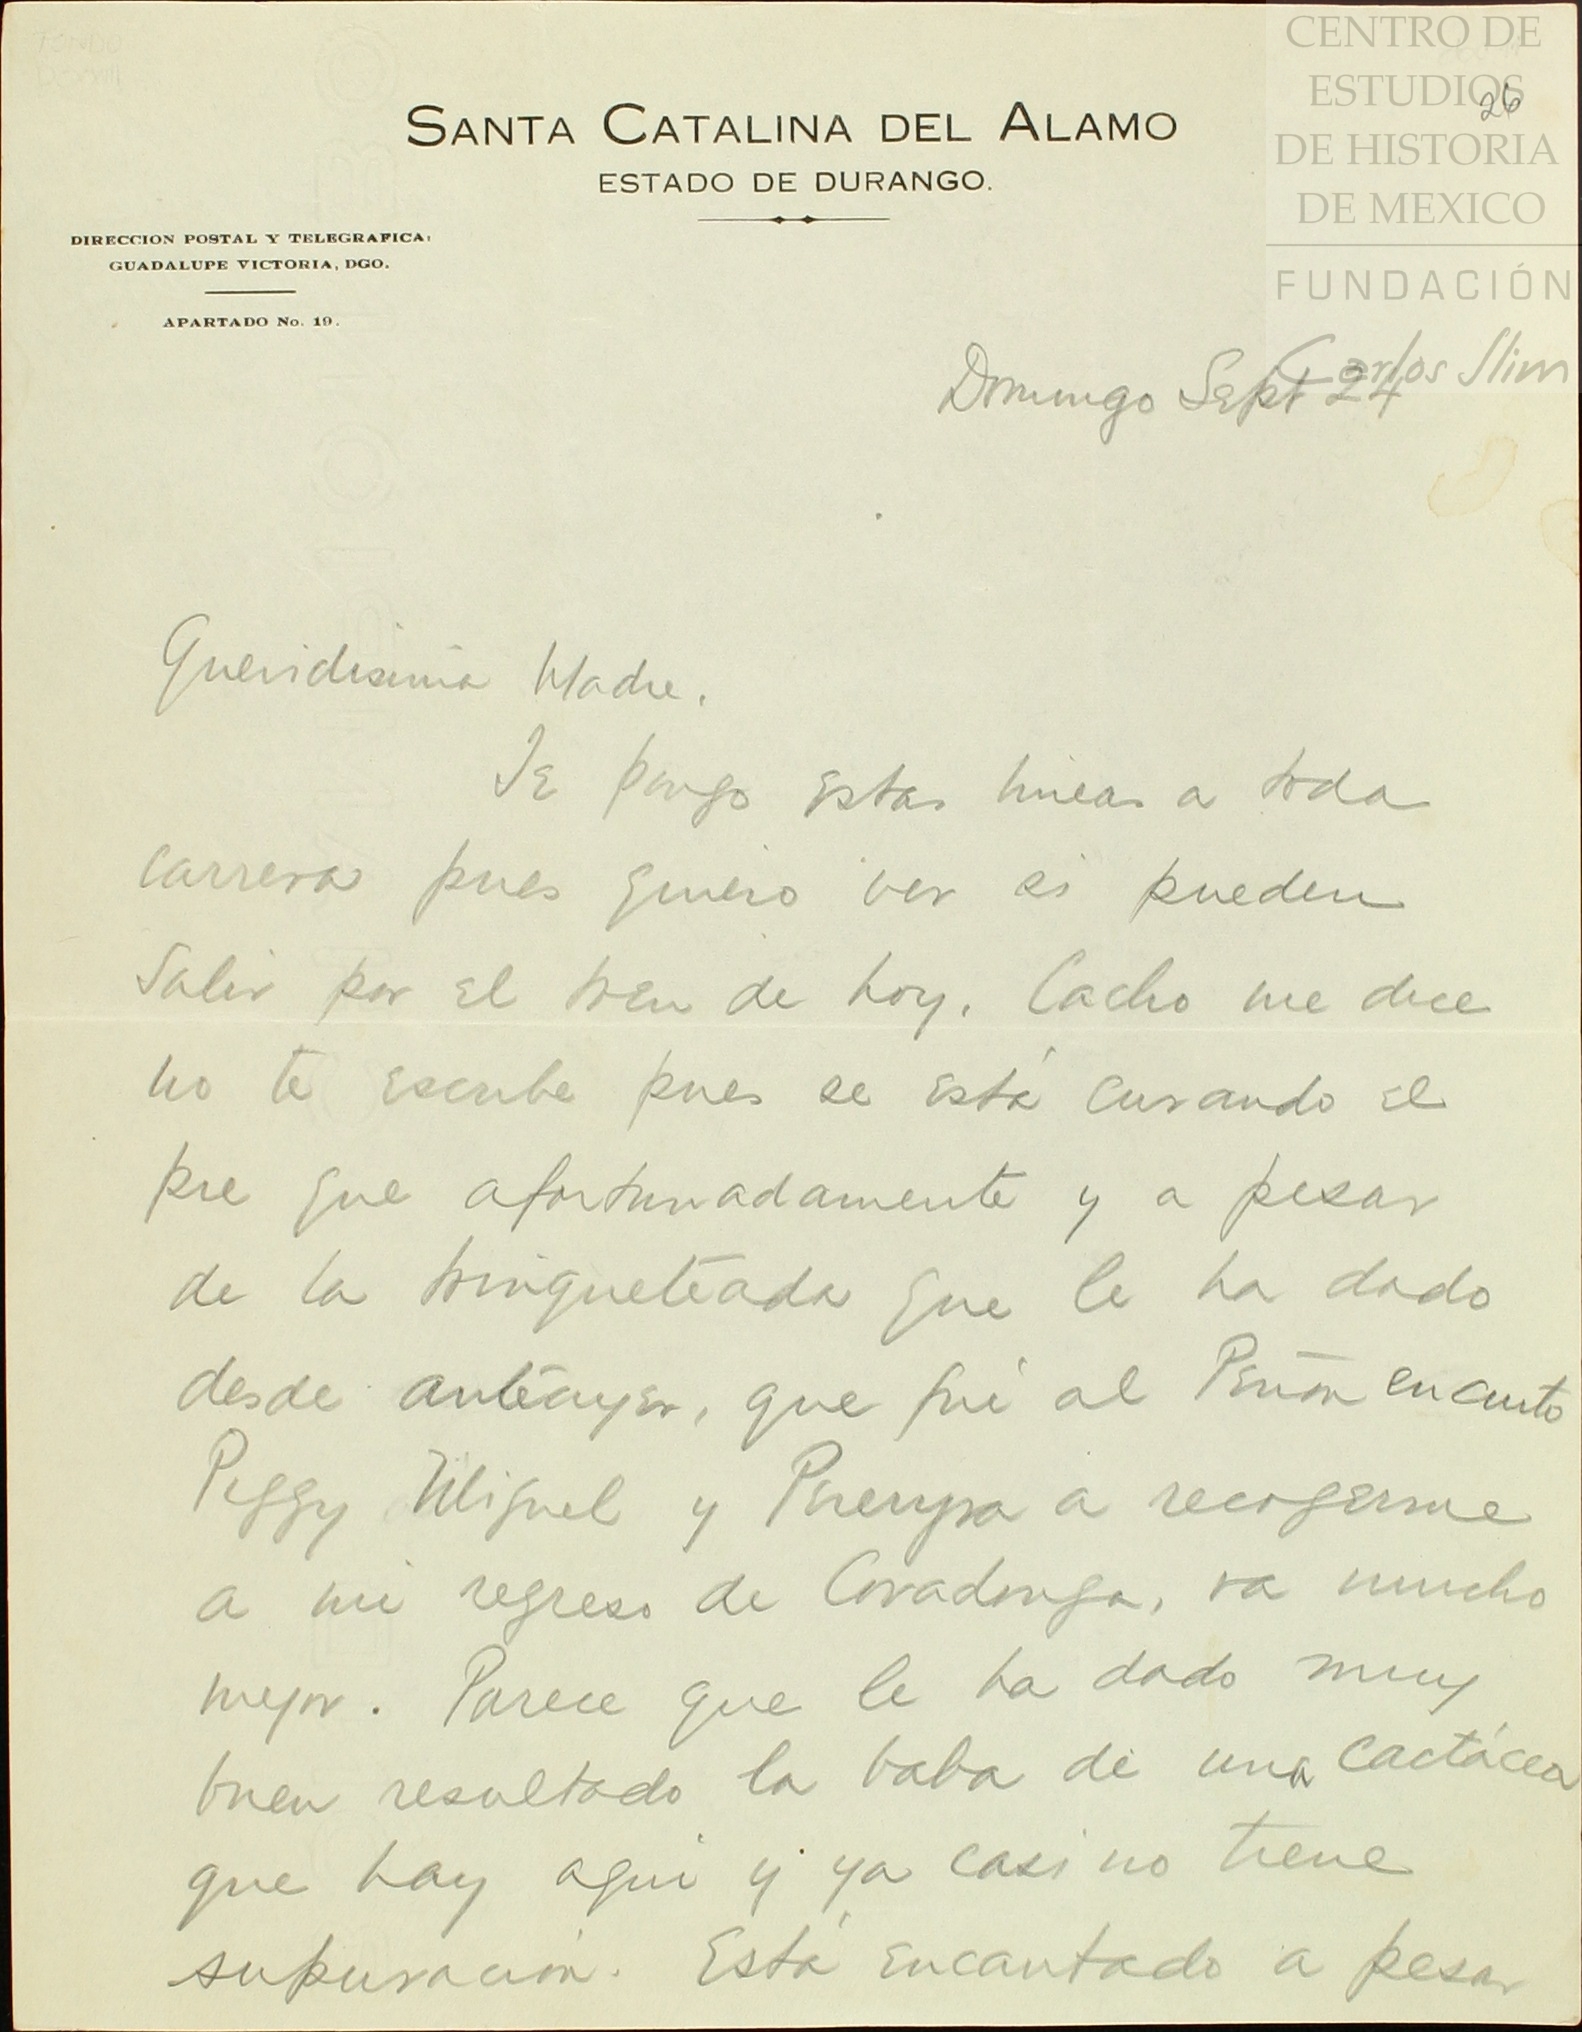 FONDO
DCXVIII
CENTRO DE
ESTUDIOS
DE HISTORIA
DE MEXICO
FUNDACIÓN
Carlos Slim
26
SANTA CATALINA DEL ALAMO
ESTADO DE DURANGO.
DIRECCION POSTAL Y TELEGRAFICA:
GUADALUPE VICTORIA, DGO.
APARTADO No. 19.
Domingo Sept 24
Queridisima Madre.
Te pongo estas lineas a toda
carrera pues quiero ver si pueden
salir por el tren de hoy. Cacho me dice
no te escribe pues se está curando el
pie que afortunadamente y a pesar
de la trinqueteada que le ha dado
desde anteayer, que fué al Peñón en cuanto
Peggy Miguel y a recogerme
a mi regreso de Covadonga, va mucho
mejor. Parece que le ha dado muy
buen resultado la baba de una cactácea
que hay aqui y ya casi no tiene
supuración. Está encantado a pesar